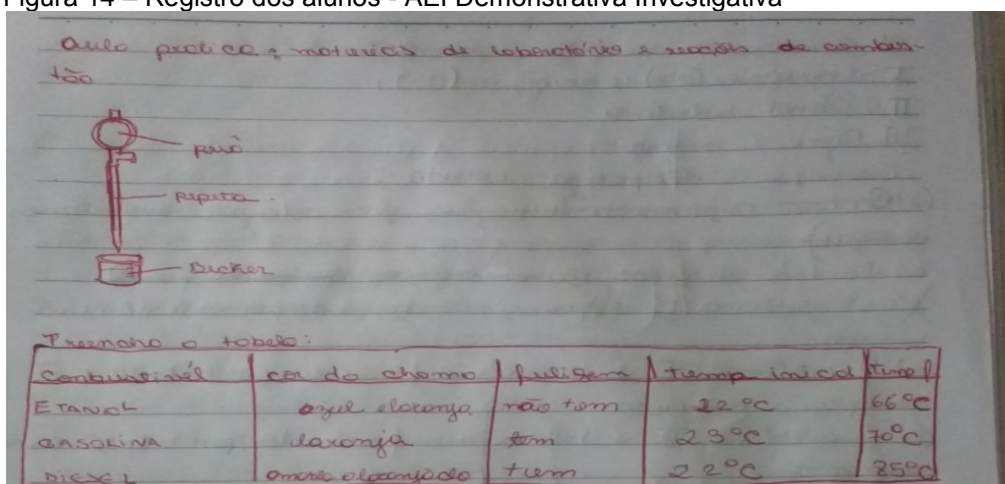 Figura 14 – Registro dos alunos - AEI Demonstrativa Investigativa
aula pratica: materiais de laboratório e reação de combus-
tão
pipeta
Becker
Preencha a tabela:
combustivél cor da chama fuligem temp inicial temp f
ETANOL azul alaranja não tem 22 °C 66 °C
GASOLINA laranja tem 23 °C 70 °C
DIESEL alaranjado tem 22 °C 85 °C